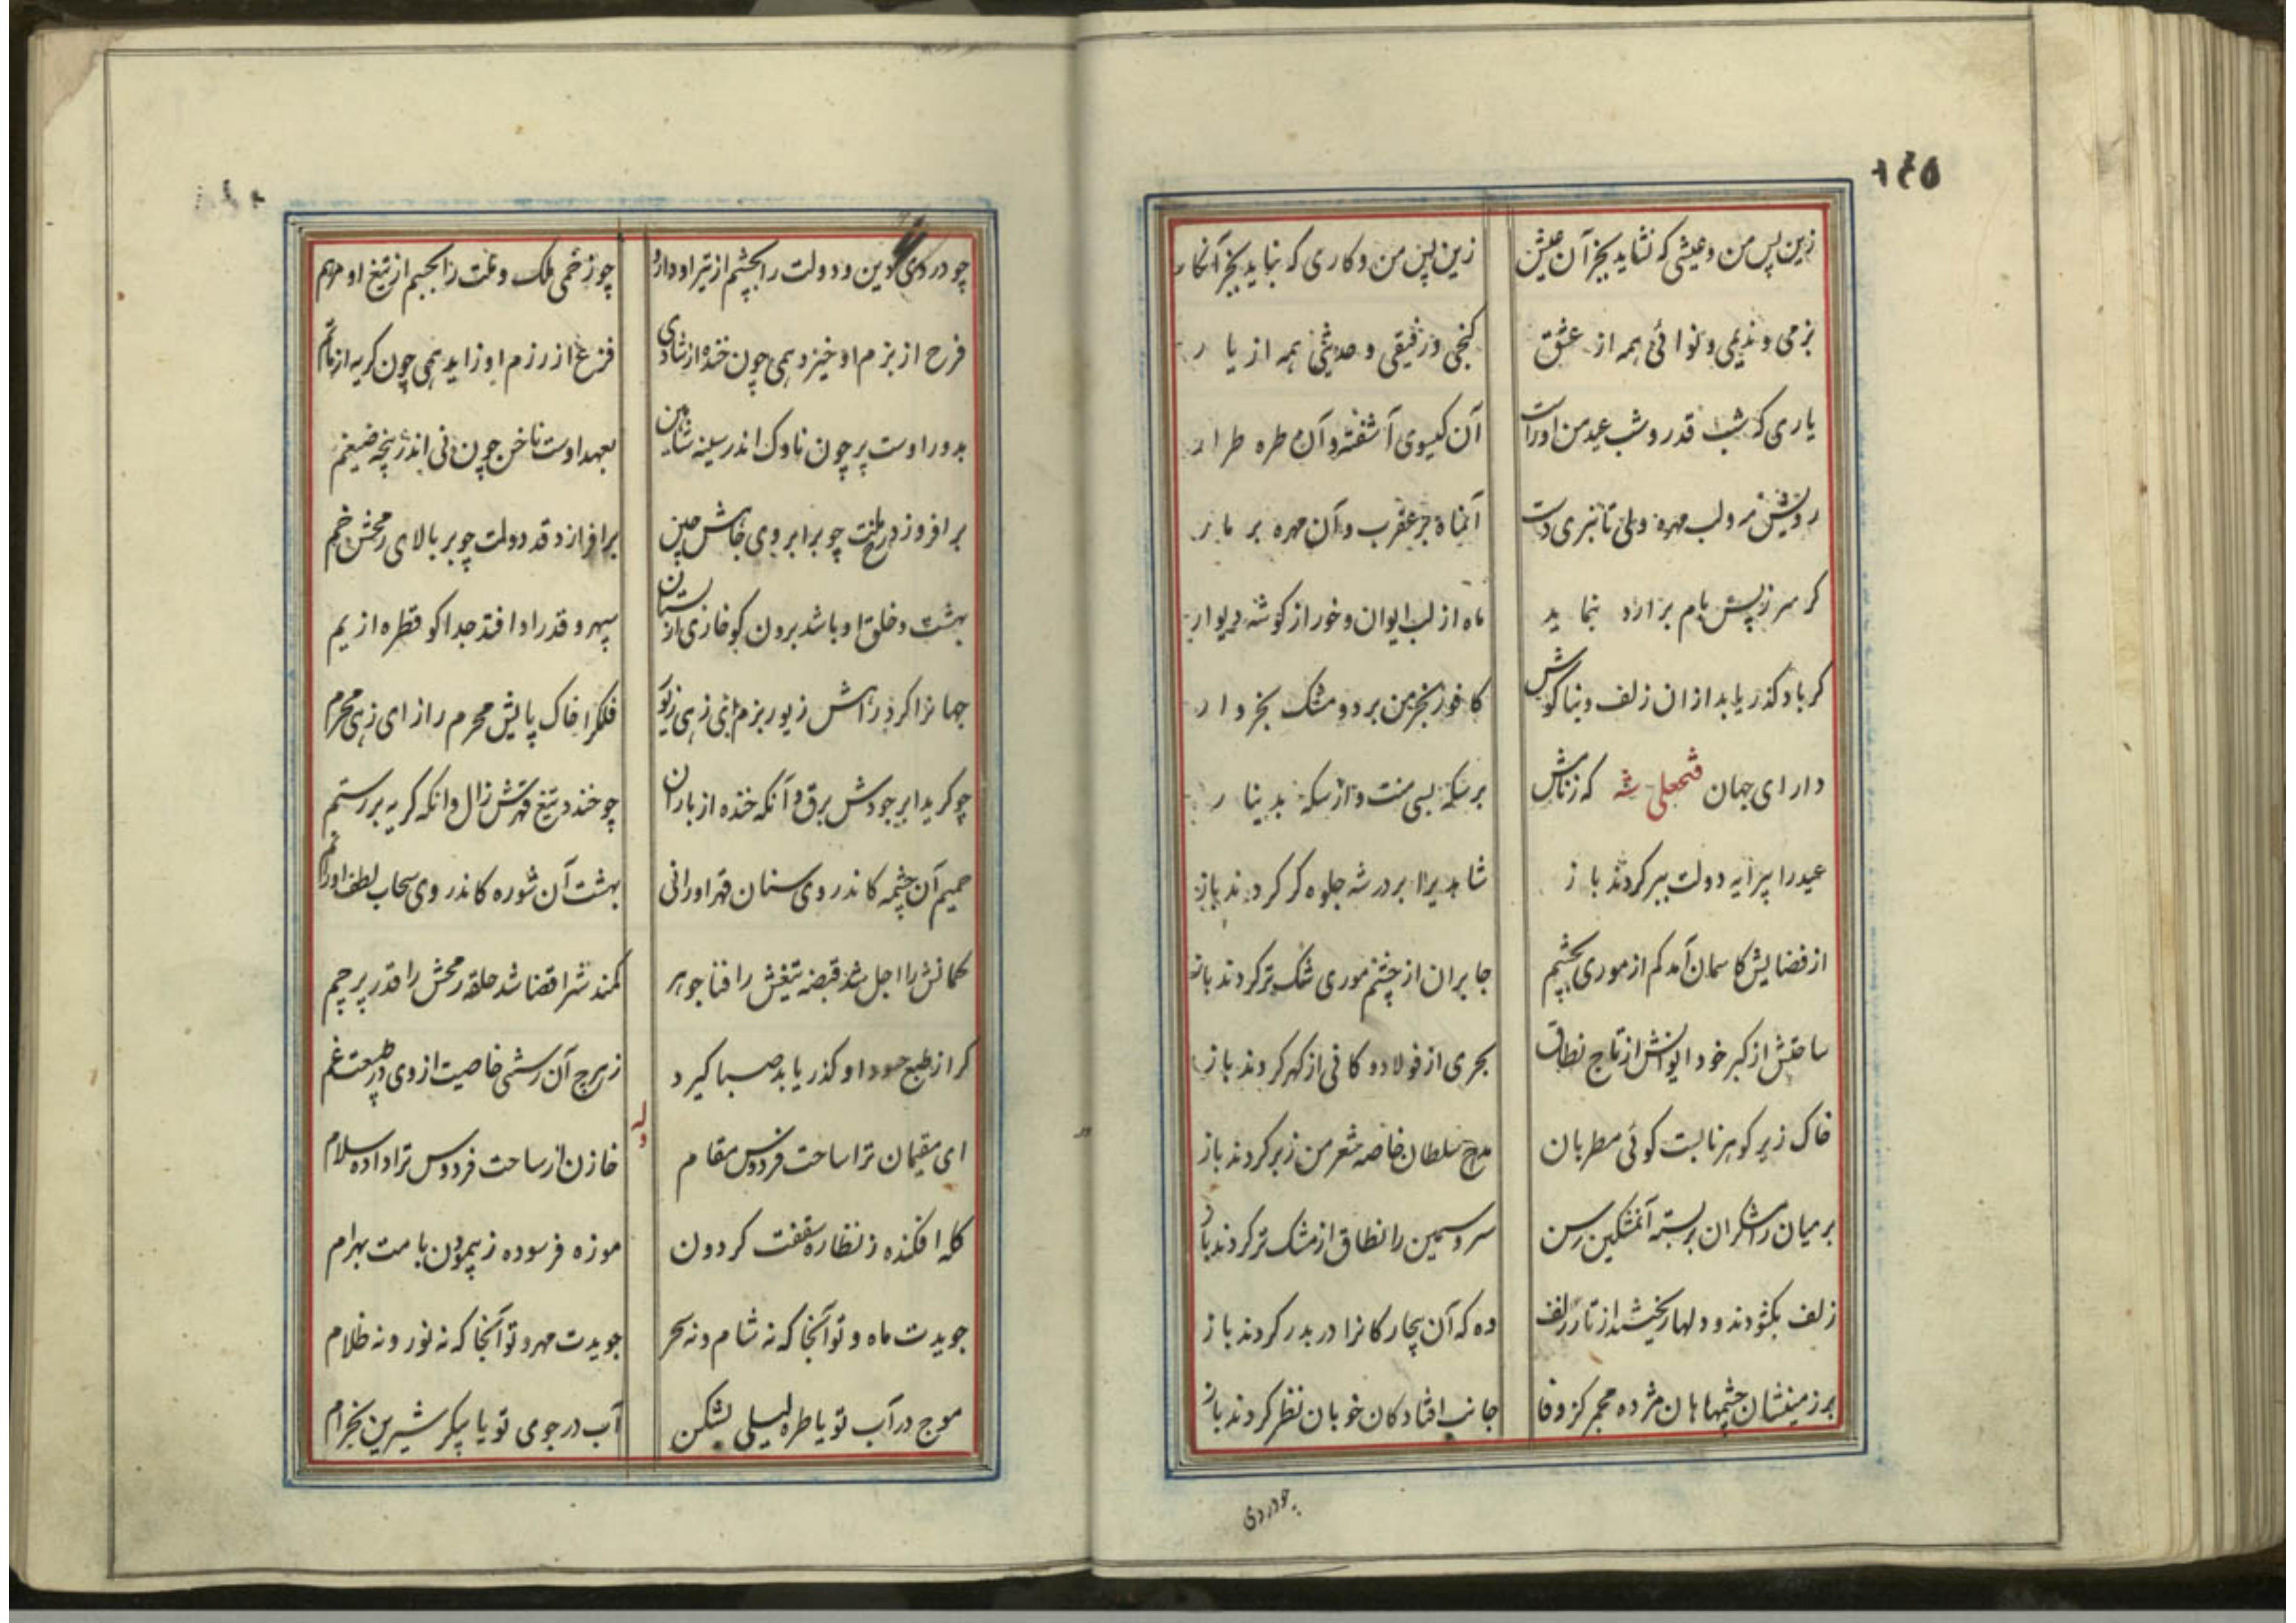 ۱۴۵
زین پس من و عیشی که نشاید بجز آن عیش
زین پس من و کاری که نباید بجز آنکار
بزمی و ندیمی و نوائی همه از عشق
کنجی و رفیقی و حدیثی همه از یار
یاری که شب قدر و شب عید من اوراست
آن کیسوی آشفته و آن طره طرار
رویش مه و لب مهره ولی تا نبری دست
آنماه بر عقرب و آن مهره بر مار
کر سر ز پس بام برآرد بنماید
ماه از لب ایوان و خور از کوشه دیوار
کر باد کذر یابد از ان زلف و بناکوش
کافور بخرمن برد و مشک بخروار
دارای جهان فتحعلی شه که ز نامش
بر سکه بسی منت و از سکه بدینار
عید را پیرایه دولت ببر کردند باز
شاهدیرا بر در شه جلوه کر کردند باز
از فضایش کاسمان آمد کم از موری بچشم
جا بر ان از چشم موری تنک تر کردند باز
ساحتش از کبر خود ایوانش از تاج نطاق
بحری از فولاد و کانی از کهر کردند باز
خاک زیر کوهر نابست کوئی مطربان
مدح سلطان خاصه شعر من زبر کردند باز
بر میان رامشکران بر بسته آنمشکین رسن
سرو سیمین را نطاق از مشک تر کردند باز
زلف بکشودند و دلها ریخت از تار زلف
وه که آن بیچارکانرا در بدر کردند باز
بر زمینشان چشمها هان مژده مجمر کز وفا
جانب افتادکان خوبان نظر کردند باز
چو دردی
چو دردی دین و دولت را بچشم از تیر او دارو
چو زخمی ملک و ملت را بجسم از تیغ او مرهم
فرح از بزم او خیزد همی چون خنده از شادی
فزع از رزم او زاید همی چون کریه از ماتم
بدور اوست پر چون ناوک اندر سینه شاهین
بعهد اوست ناخن چون نی اندر پنجه ضیغم
بر افروزد رخ ملت چو بر ابروی خاش چین
برافرازد قد دولت چو بر بالای رمحش خم
بهشت و خلق او باشد برون کو خاری از بستان
سپهر و قدر او افتد جدا کو قطره از یم
جهانرا کرد راش زیور بزم
فلکرا خاک پایش محرم راز ای زهی محرم
چو کرید ابر جودش برق و آنکه خنده از باران
چو خندد تیغ قهرش زال و انکه کریه بر رستم
حمیم آن چشمه کاندر وی سنان قهر او رانی
بهشت آن شوره کاندر وی سحاب لطف او را نم
کمانش را اجل شد قبضه تیغش را فنا جوهر
کمندشرا قضا شد حلقه رمحش را قدر پرچم
کر از طبع حسود او کذر یابد صبا کیرد
خاصیت از وی در طبیعت غم
وله
ای مقیمان ترا ساحت فردوس مقام
خازن از ساحت فردوس ترا داده سلام
کله افکنده ز نظاره سقفت کردون
موزه فرسوده ز پیمودن بامت بهرام
جویدت ماه و تو آنجا که نه شام و نه سحر
جویدت مهر و تو آنجا که نه نور و نه ظلام
موج در آب تو یا طره لیلی بشکن
آب در جوی تو یا پیکر شیرین بخرام